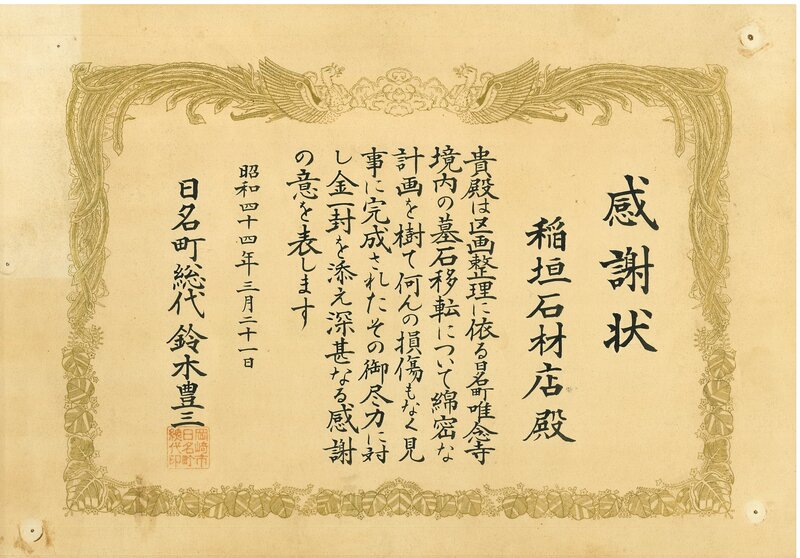 感謝状
稲垣石材店殿
貴殿は区画整理に依る日名町唯念寺
境内の墓石移転について綿密な
計画を樹て何んの損傷もなく見
事に完成されたその御尽力に対
し金一封を添え深甚なる感謝
の意を表します
昭和四十四年三月二十一日
日名町総代 鈴木豊三
岡崎市
日名町
総代印